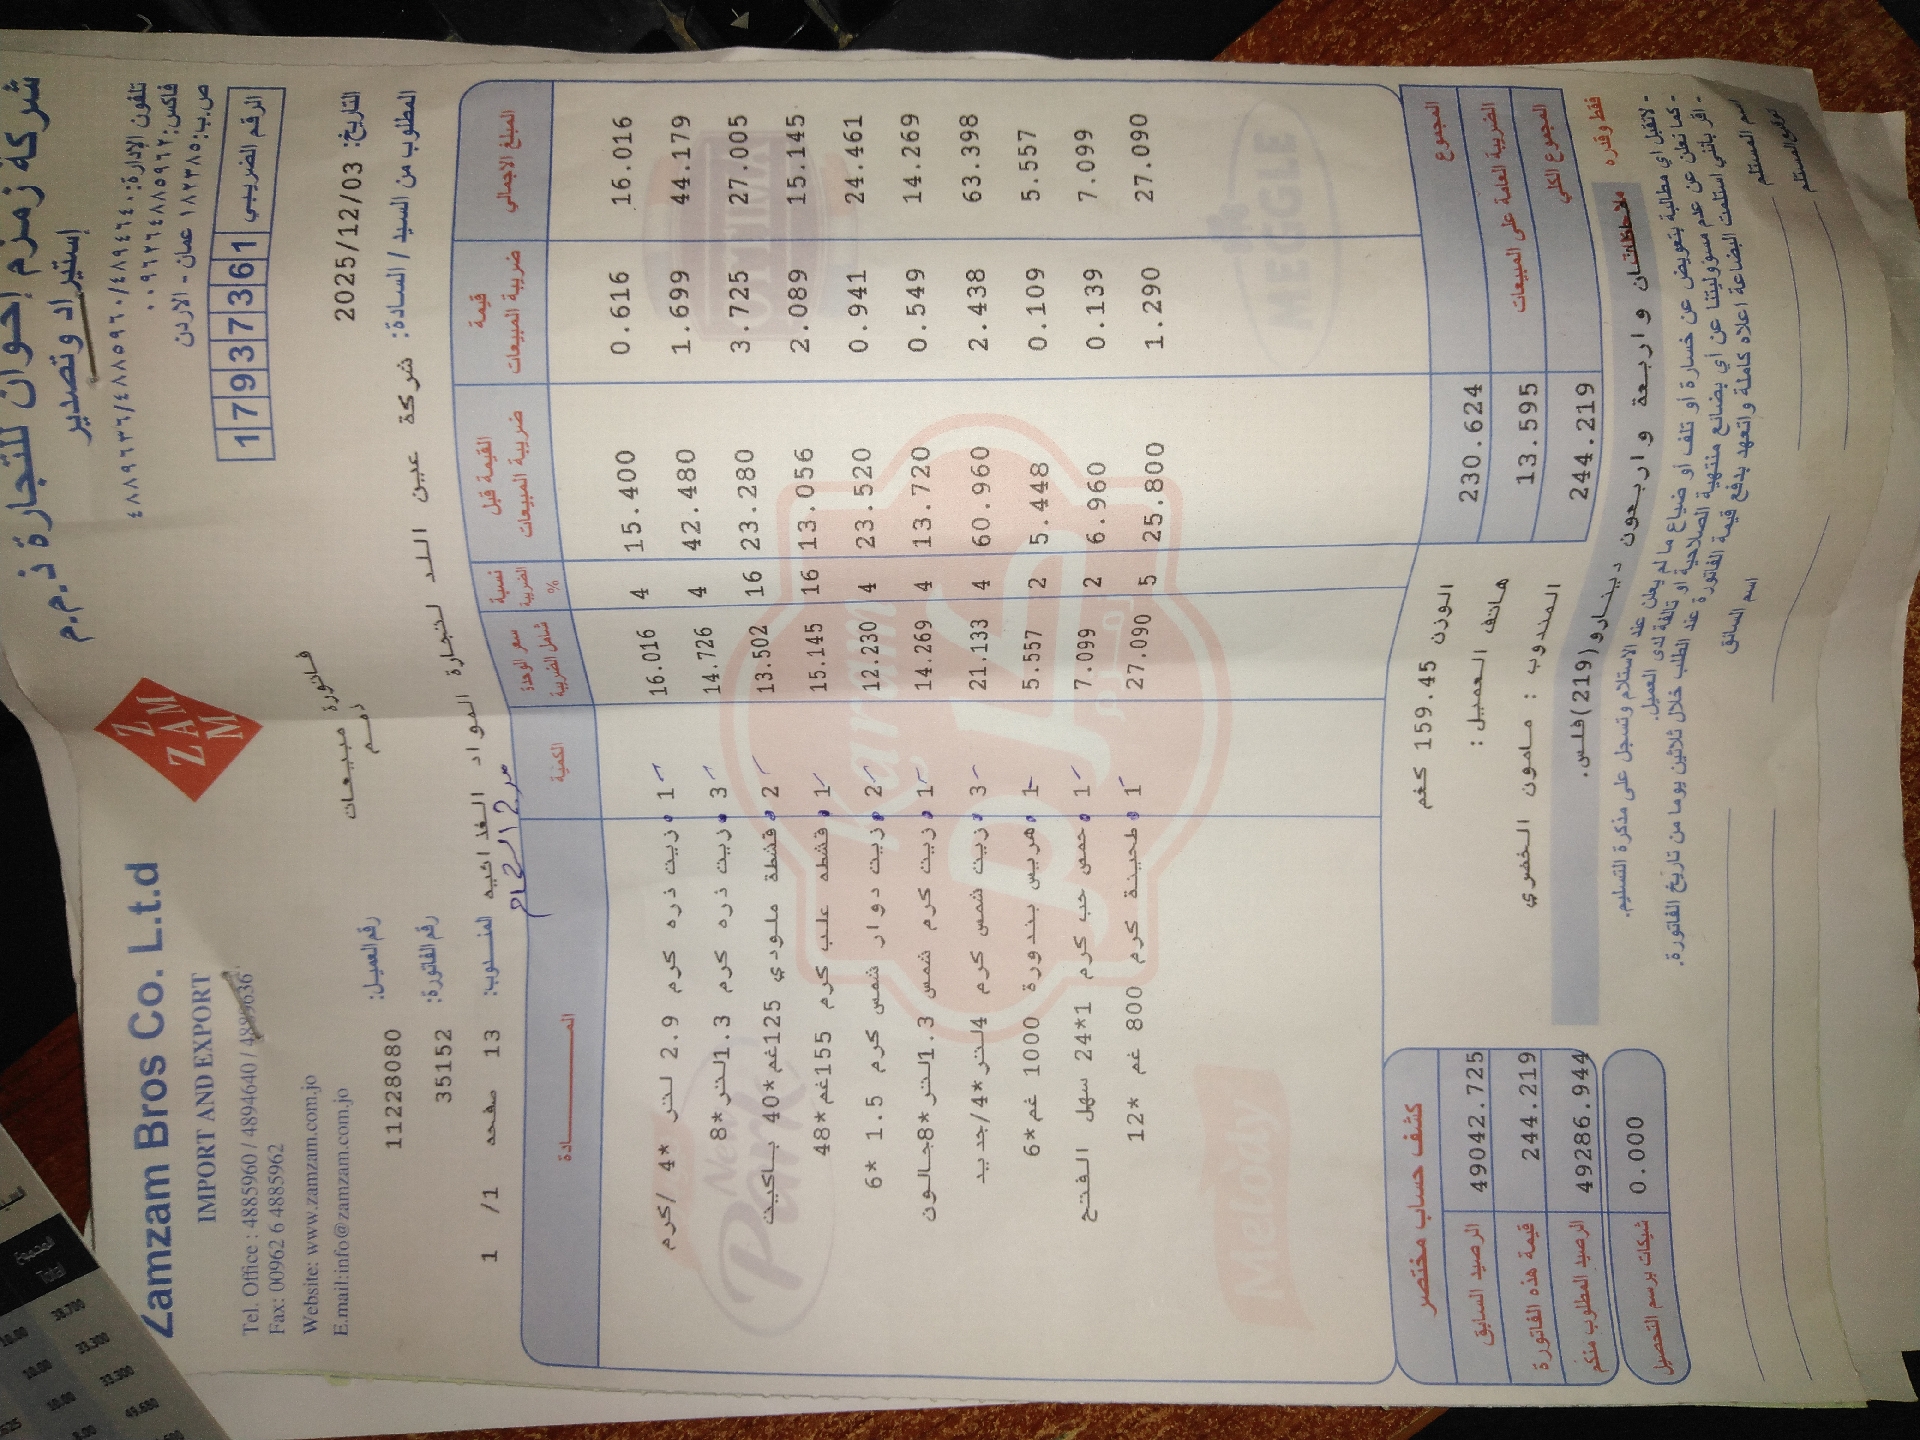 شركة زمزم إخوان للتجارة ذ.م.م
إستيراد وتصدير
تلفون الإدارة: ٤٨٨٩٦٣٦/٤٨٨٥٩٦٠/٤٨٩٤٦٤٠
فاكس: ٠٠٩٦٢٦٤٨٨٥٩٦٢
ص.ب: ١٨٢٣٨٥ عمان - الاردن
الرقم الضريبي 1 7 9 3 7 3 6 1
Z
ZAM
M
Zamzam Bros Co. L.t.d
IMPORT AND EXPORT
Tel. Office : 4885960 / 4894640 / 4889636
Fax: 00962 6 4885962
Website: www.zamzam.com.jo
E.mail:info@zamzam.com.jo
فاتورة مبيعات
ذمم
التاريخ: 2025/12/03
رقم العميل: 11228080
رقم الفاتورة: 35152
المطلوب من السيد / السادة: شركة عين اللد لتجارة المواد الغذائيه
المندوب: 13 صفحه 1/ 1
المادة | الكمية | سعر الوحدة شامل الضريبة | نسبة الضريبة % | القيمة قبل ضريبة المبيعات | قيمة ضريبة المبيعات | المبلغ الاجمالي
زيت ذره كرم 2.9 لتر *4 /كرم 1 16.016 4 15.400 0.616 16.016
زيت ذره كرم 1.3لتر*8 3 14.726 4 42.480 1.699 44.179
قشطة ملودي 125غم*40 باكيت 2 13.502 16 23.280 3.725 27.005
قشطه علب كرم 155غم*48 1 15.145 16 13.056 2.089 15.145
زيت دوار شمس كرم 1.5 *6 2 12.230 4 23.520 0.941 24.461
زيت كرم شمس 1.3لتر*8جالون 1 14.269 4 13.720 0.549 14.269
زيت شمس كرم 4لتر*4/جديد 3 21.133 4 60.960 2.438 63.398
هريس بندورة 1000 غم*6 1 5.557 2 5.448 0.109 5.557
حمص حب كرم 1*24 سهل الفتح 1 7.099 2 6.960 0.139 7.099
طحينة كرم 800 غم *12 1 27.090 5 25.800 1.290 27.090
OTTIMA
MEGGLE
karam
كرم
New
Park
Melody
المجموع 230.624
الضريبة العامة على المبيعات 13.595
المجموع الكلي 244.219
الوزن 159.45 كغم
هاتف العميل :
المندوب : مامون الخضري
كشف حساب مختصر
الرصيد السابق 49042.725
قيمة هذه الفاتورة 244.219
الرصيد المطلوب منكم 49286.944
شيكات برسم التحصيل 0.000
فقط وقدره مائتان واربعة واربعون دينارو(219)فلس.
ملاحظات
- لاتقبل أي مطالبة بتعويض عن خسارة أو تلف أو ضياع ما لم يعلن عند الاستلام وتسجل على مذكرة التسليم.
- كما نعلن عن عدم مسؤوليتنا عن أي بضائع منتهية الصلاحية او تالفة لدى العميل.
- اقر بأنني استلمت البضاعة اعلاه كاملة واتعهد بدفع قيمة الفاتورة عند الطلب خلال ثلاثين يوما من تاريخ الفاتورة.
اسم المستلم
اسم السائق
توقيع المستلم